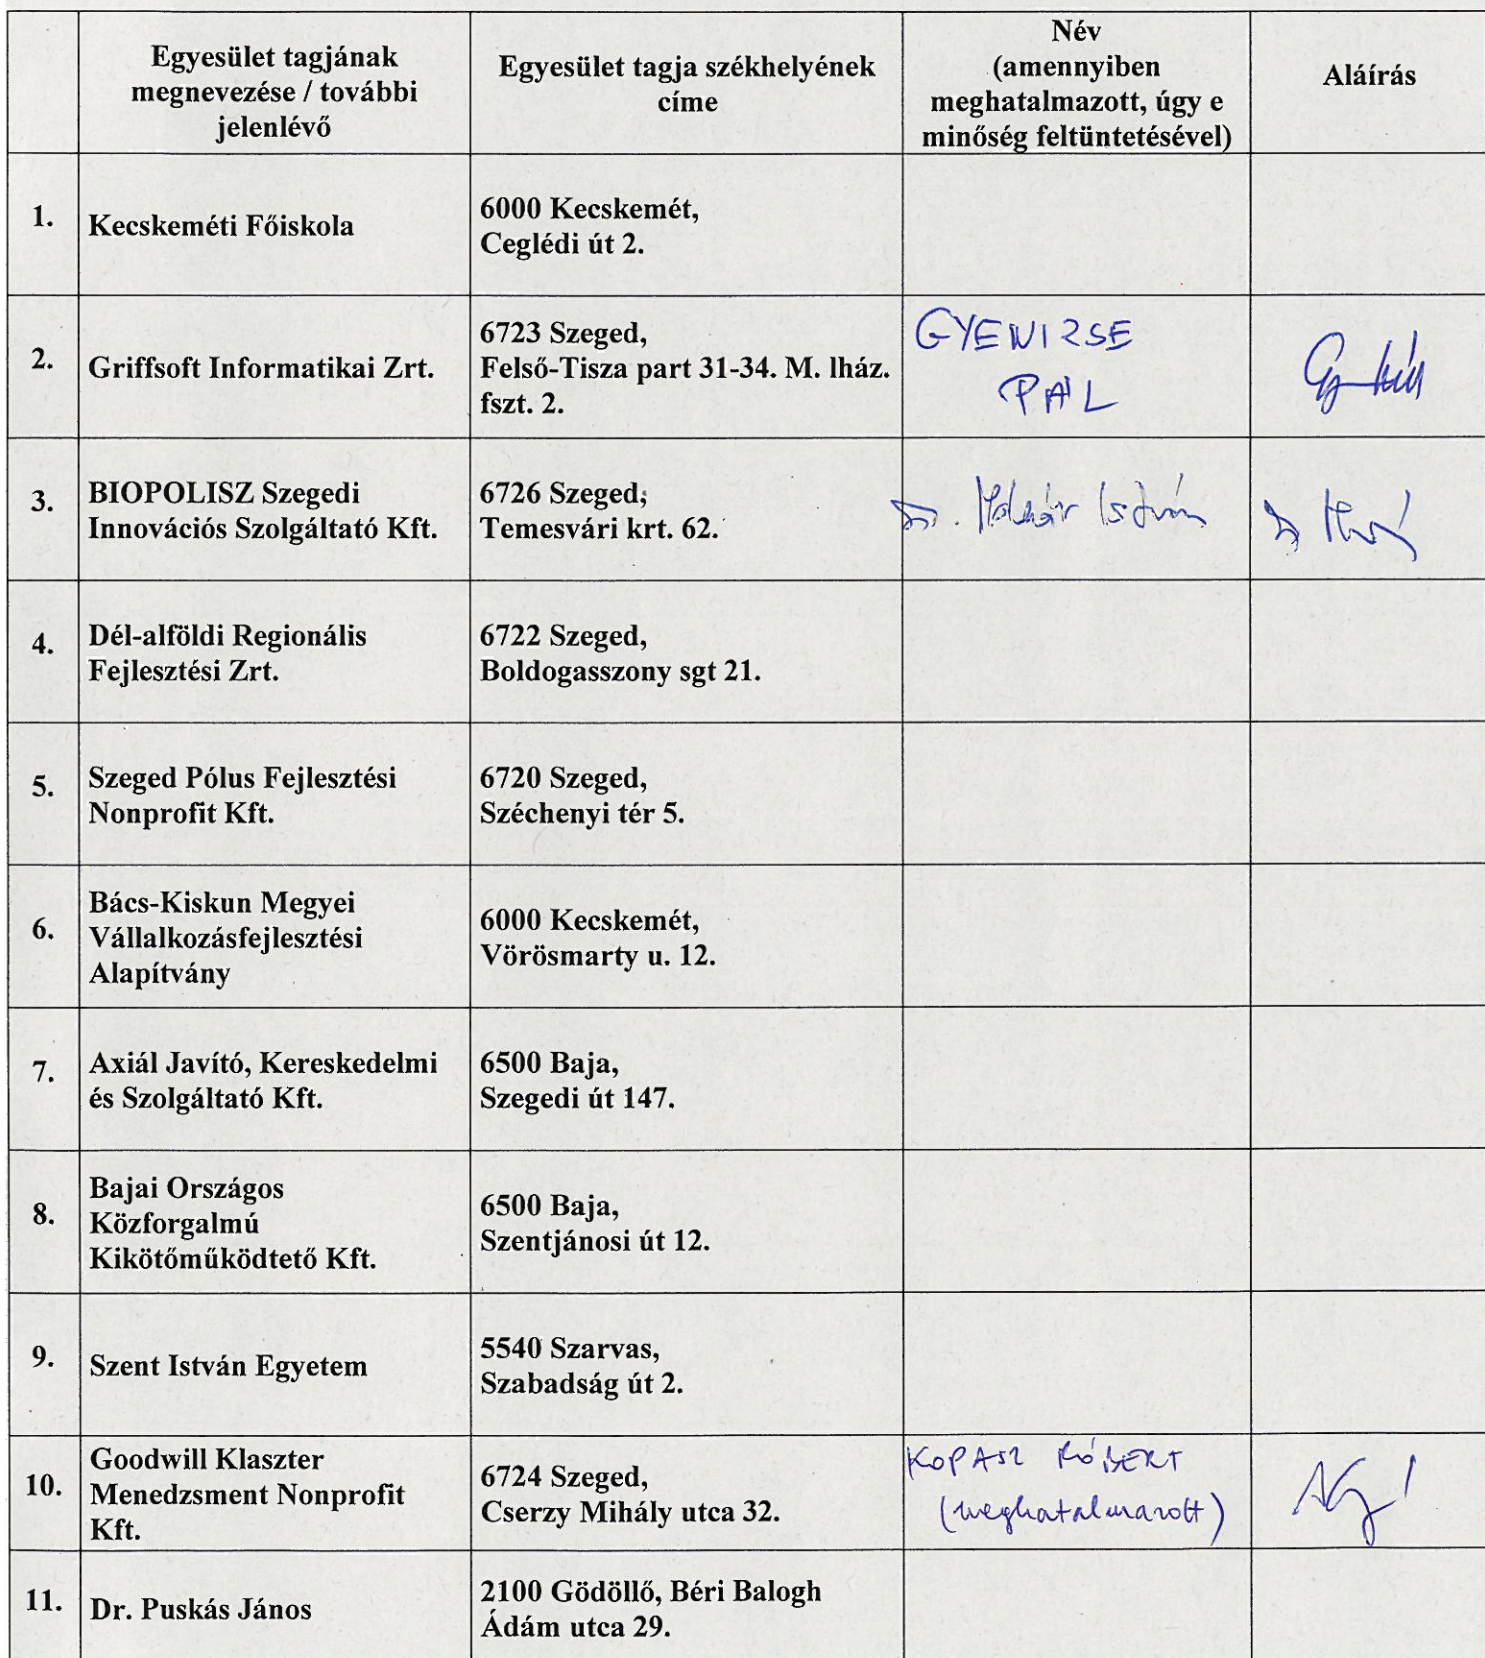 Egyesület tagjának
megnevezése / további
jelenlévő
Egyesület tagja székhelyének
címe
Név
(amennyiben
meghatalmazott, úgy e
minőség feltüntetésével)
Aláírás
1.
Kecskeméti Főiskola
6000 Kecskemét,
Ceglédi út 2.
2.
Griffsoft Informatikai Zrt.
6723 Szeged,
Felső-Tisza part 31-34. M. lház.
fszt. 2.
GYENIZSE
PÁL
3.
BIOPOLISZ Szegedi
Innovációs Szolgáltató Kft.
6726 Szeged,
Temesvári krt. 62.
Dr. Molnár István
4.
Dél-alföldi Regionális
Fejlesztési Zrt.
6722 Szeged,
Boldogasszony sgt 21.
5.
Szeged Pólus Fejlesztési
Nonprofit Kft.
6720 Szeged,
Széchenyi tér 5.
6.
Bács-Kiskun Megyei
Vállalkozásfejlesztési
Alapítvány
6000 Kecskemét,
Vörösmarty u. 12.
7.
Axiál Javító, Kereskedelmi
és Szolgáltató Kft.
6500 Baja,
Szegedi út 147.
8.
Bajai Országos
Közforgalmú
Kikötőműködtető Kft.
6500 Baja,
Szentjánosi út 12.
9.
Szent István Egyetem
5540 Szarvas,
Szabadság út 2.
10.
Goodwill Klaszter
Menedzsment Nonprofit
Kft.
6724 Szeged,
Cserzy Mihály utca 32.
KOPASZ RÓBERT
(meghatalmazott)
11.
Dr. Puskás János
2100 Gödöllő, Béri Balogh
Ádám utca 29.